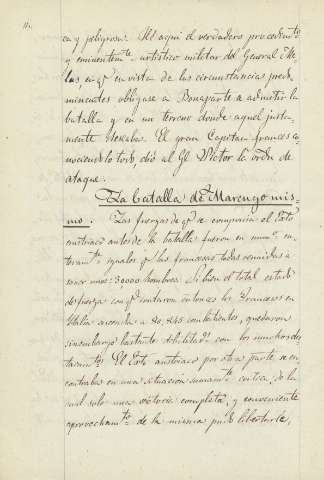 ca y peligrosa. He aqui el verdadero procedimto
y eminentemte artistico militar del General Me-
las, en qe en vista de las circunstancias predo
minantes obligase a Bonaparte a admitir la
batalla y en un terreno donde aquel justa-
mente deseaba. El gran Capitan frances co-
nociendolo todo, dió al Gl Victor la orden de
ataque.
La batalla de Marengo mis-
mo. Las fuerzas de qe se componia el Exto
austriaco antes de la batalla fueron en numo en-
teramte iguales qe las francesas todas reunidas a
unos 30000 hombres. Si bien el total estado
de fuerza con qe contaron entonces los Franceses en
Italia ascendia a combatientes, quedaron
sinembargo bastante debilitads con los muchos des-
tacamtos. El Exto austriaco por otra parte se en-
contraba en una situacion sumamte critica, de la
cual solo una victoria completa, y conveniente
aprovechamto de la misma pudo libertarle,